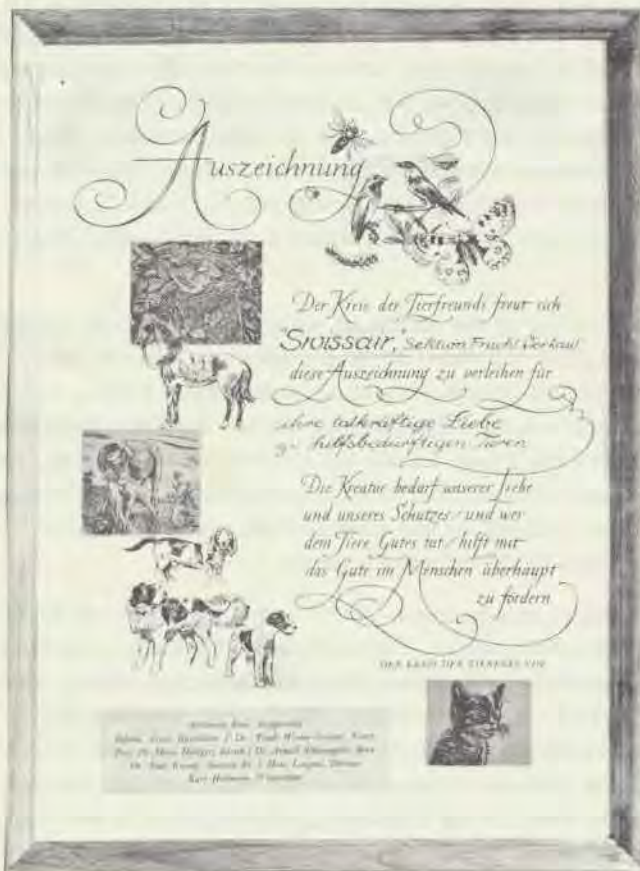 Auszeichnung
Der Kreis der Tierfreunde freut sich
"Swissair," Sektion Fracht Verkauf
diese Auszeichnung zu verleihen für
ihre tatkräftige Liebe
zu hilfsbedürftigen Tieren
Die Kreatur bedarf unserer Liebe
und unseres Schutzes / und wer
dem Tiere Gutes tut / hilft mit
das Gute im Menschen überhaupt
zu fördern
DER KREIS DER TIERFREUNDE